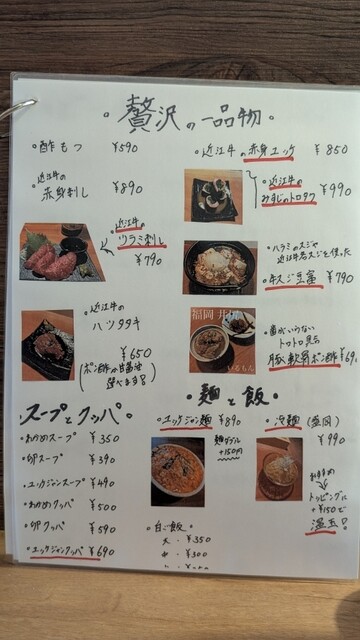 ・贅沢の一品物・
・酢もつ ¥590
・近江牛の赤身刺し ¥890
近江牛のツラミ刺し ¥790
・近江牛のハツタタキ ¥650
(ポン酢か甘醤油選べます)
・近江牛の赤身ユッケ ¥850
・近江牛のみすじのトロタク ¥990
・ハラミのスジや近江牛スジを使った
・牛スジ豆富 ¥790
福岡 丼
いるもん
・歯がいらないトロトロ
豚軟骨ポン酢 ¥69
スープとクッパ
・わかめスープ ¥350
・卵スープ ¥390
・ユッケジャンスープ ¥490
・わかめクッパ ¥500
・卵クッパ ¥590
・ユッケジャンクッパ ¥690
・麺と飯・
・ユッケジャン麺 ¥890
麺ダブル +150円
・冷麺(盛岡) ¥990
トッピング +¥150で温玉!
・白ご飯・
大・¥350
中・¥300